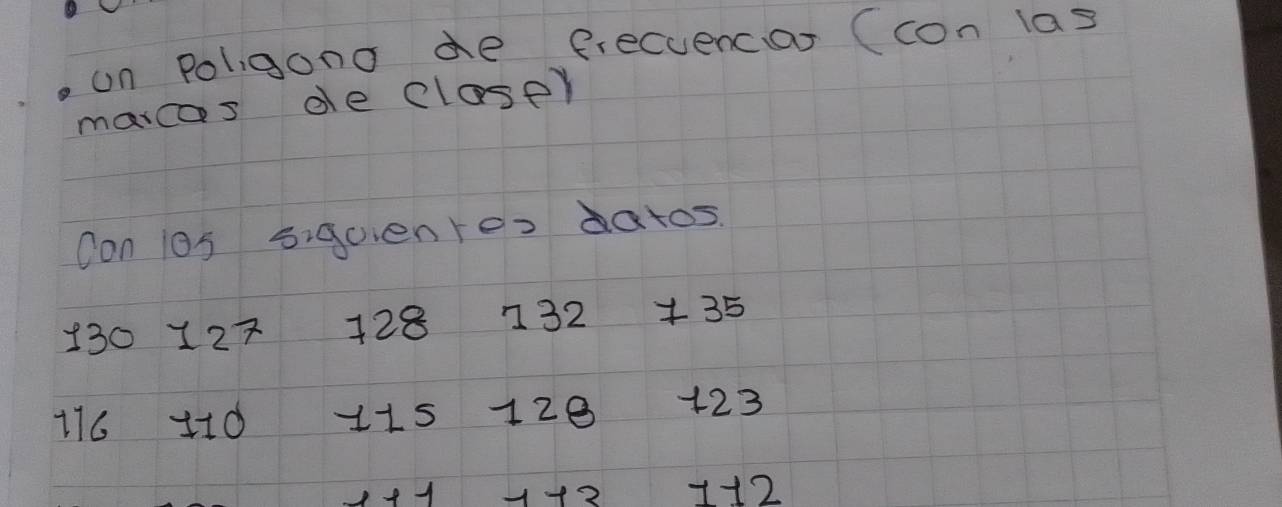 . un Poligono de frecuencias (con las
marcas de clase)
Con los siguientes datos.
130 127 128 132 135
116 110 115 128 123
111 112